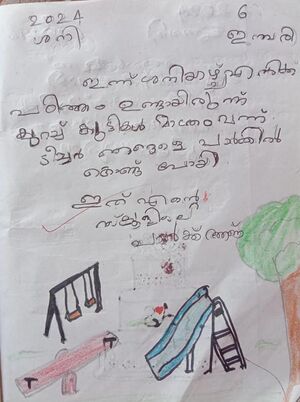 2024 6
ശനി ജനുവരി
ഇന്ന് ശനിയാഴ്ച്ച എനിക്ക്
പഠിത്തം ഉണ്ടായിരുന്ന്
കുറച്ച് കുട്ടികൾ മാത്രം വന്ന്
ടീച്ചർ ഞങ്ങളെ പാർക്കിൽ
കൊണ്ട് പോയി
ഇത് എന്റെ
സ്കൂളിലെ
പാർക്ക് ആണ്